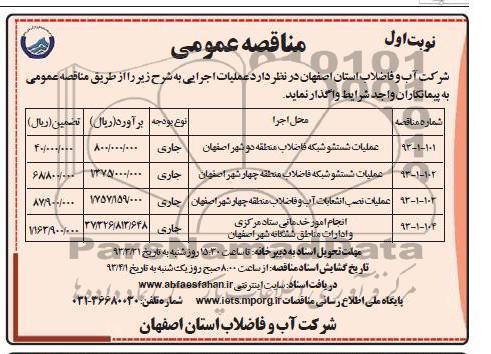 نوبت اول
مناقصه عمومی
شرکت آب و فاضلاب استان اصفهان در نظر دارد عملیات اجرایی به شرح زیر را از طریق مناقصه عمومی
به پیمانکاران واجد شرایط واگذار نماید.
شماره مناقصه محل اجرا نوع بودجه برآورد (ریال) تضمین (ریال)
۹۳-۱-۱۰۱ عملیات شستشو شبکه فاضلاب منطقه دو شهر اصفهان جاری ۸۰۰/۰۰۰/۰۰۰ ۴۰/۰۰۰/۰۰۰
۹۳-۱-۱۰۲ عملیات شستشو شبکه فاضلاب منطقه چهار شهر اصفهان جاری ۱۳۷۵/۰۰۰/۰۰۰ ۶۸/۸۰۰/۰۰۰
۹۳-۱-۱۰۳ عملیات نصب انشعابات آب و فاضلاب منطقه چهار شهر اصفهان جاری ۱۷۵۷/۱۵۹/۰۰۰ ۸۷/۹۰۰/۰۰۰
۹۳-۱-۱۰۴ انجام امور خدماتی ستاد مرکزی
و ادارات مناطق ششگانه شهر اصفهان جاری ۳۷/۳۲۶/۸۱۳/۶۴۸ ۱۱۶۳/۹۰۰/۰۰۰
مهلت تحویل اسناد به دبیرخانه: تا ساعت ۱۵:۳۰ روز شنبه به تاریخ ۹۳/۳/۳۱
تاریخ گشایش اسناد مناقصه: از ساعت ۸:۰۰ صبح روز یکشنبه به تاریخ ۹۳/۴/۱
دریافت اسناد: سایت اینترنتی www.abfaesfahan.ir
پایگاه ملی اطلاع رسانی مناقصات www.iets.mporg.ir شماره تلفن: ۰۳۱-۳۶۶۸۰۰۳۰
شرکت آب و فاضلاب استان اصفهان